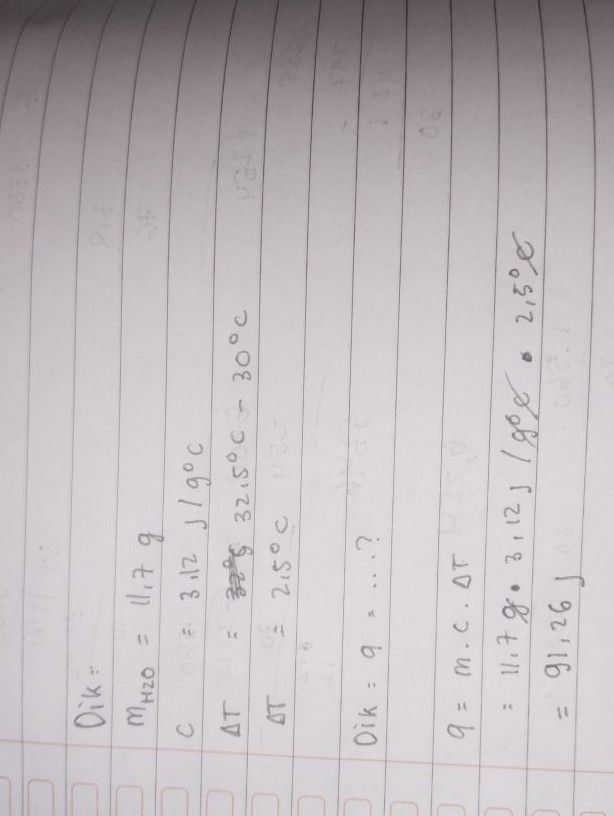 Dik =
mH2O = 11,7 g
C = 3,12 J/g°C
ΔT = 32,5°C - 30°C
ΔT = 2,5°C
Dik = q = ...?
q = m . c . ΔT
= 11,7 g . 3,12 J/g°C . 2,5°C
= 91,26 J